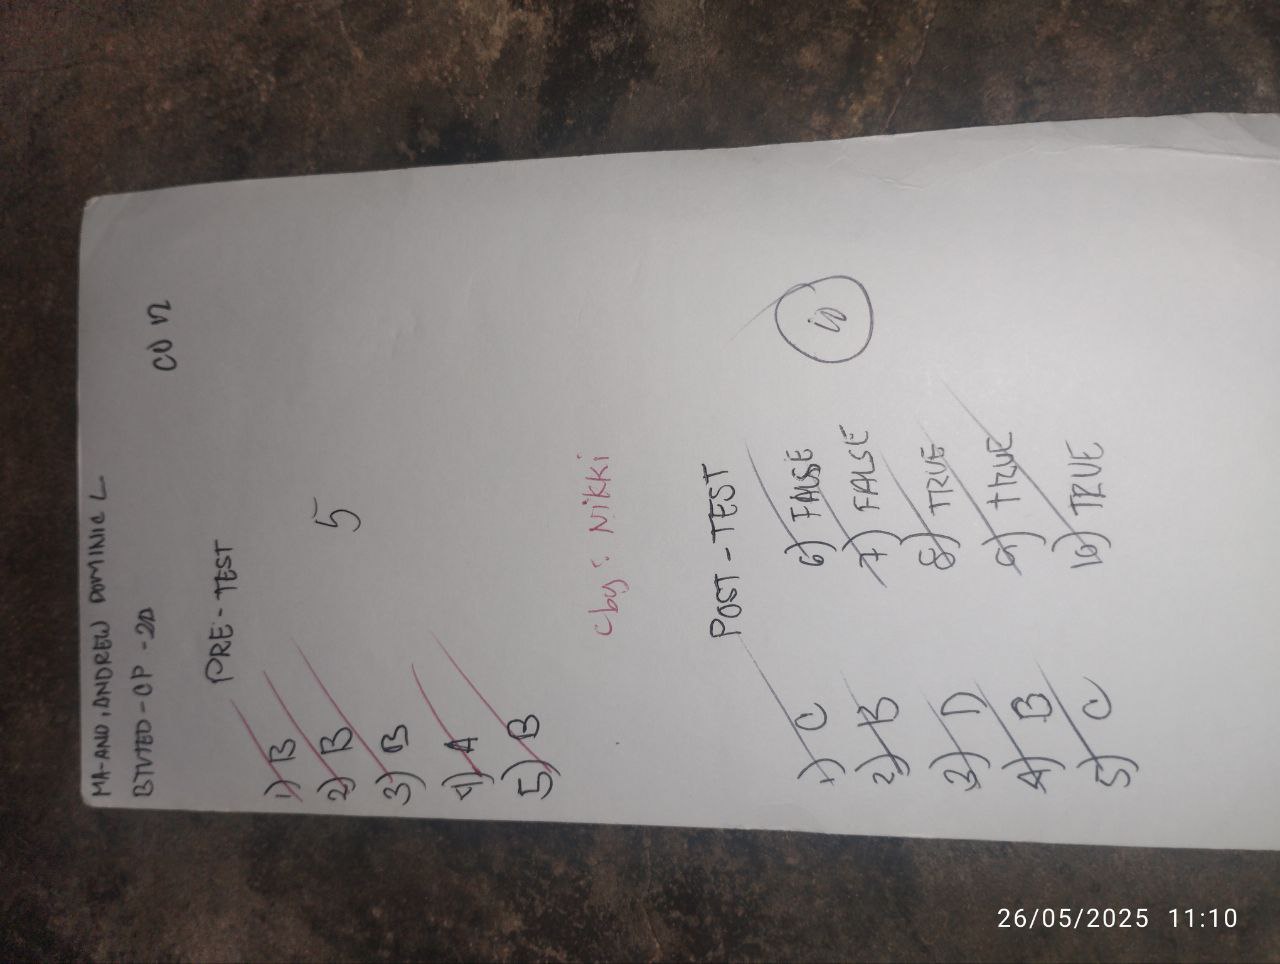 MA-ANO, ANDREW DOMINIC L
BTVTED-CP-2D
CO 12
PRE-TEST
1) B
2) B
3) B
4) A
5) B
5
Cby: Nikki
POST-TEST
1) C
2) B
3) D
4) B
5) C
6) FALSE
7) FALSE
8) TRUE
9) TRUE
10) TRUE
10
26/05/2025 11:10